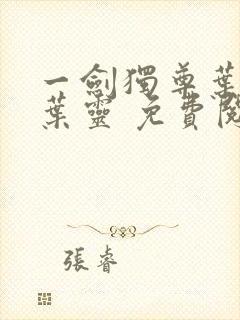 一劍獨尊葉
葉靈 免費閱
張睿